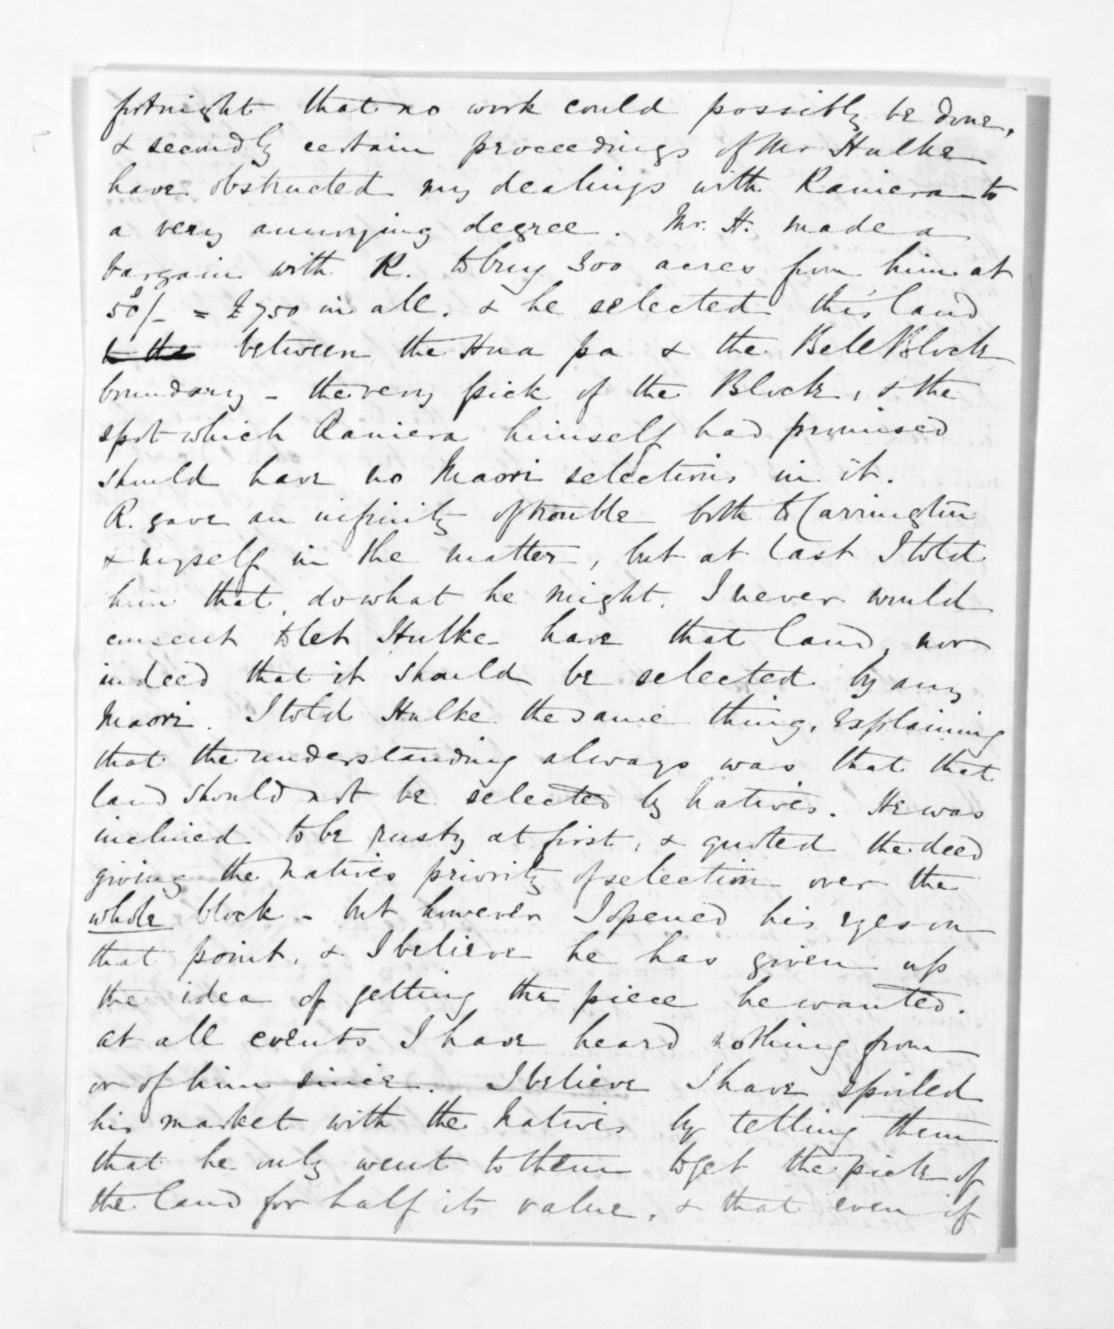 fortnight that no work could possibly be done,
& secondly certain proceedings of Mr Hulke
have obstructed my dealings with Raniera to
a very annoying degree. Mr. H. made a
bargain with R. to buy 300 acres from him at
50/- = £750 in all. & he selected this land
between the Hua pa & the Bell Block
boundary - the very pick of the Block, & the
spot which Raniera himself had promised
should have no Maori selections in it.
R. gave an infinity of trouble both to Carrington
& myself in the matter, but at last I told
him that, do what he might, I never would
consent to let Hulke have that land, nor
indeed that it should be selected by any
Maori. I told Hulke the same thing, explaining
that the understanding always was that that
land should not be selected by Natives. He was
inclined to be rusty at first, & quoted the deed
giving the Natives priority of selection over the
whole block - but however I opened his eyes on
that point, & I believe he has given up
the idea of getting the piece he wanted.
at all events I have heard nothing from
or of him since. I believe I have spoiled
his market with the Natives by telling them
that he only went to them to get the pick of
the land for half its value, & that even if